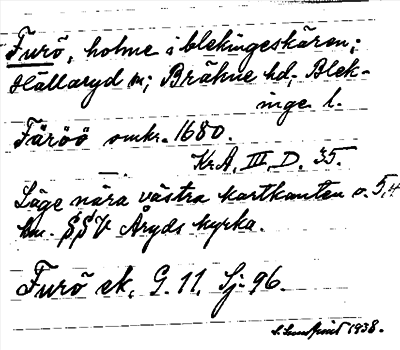 Furö, holme i blekingeskären;
Hällaryd sn; Bräkne hd, Blek-
inge l.
Färöö omkr. 1680.
Kr.A. III. D. 35.
Läge nära västra kartkanten o. 5,4
km. SSV Åryds kyrka.
Furö ek. G. 11. Sj. 96.
1938.